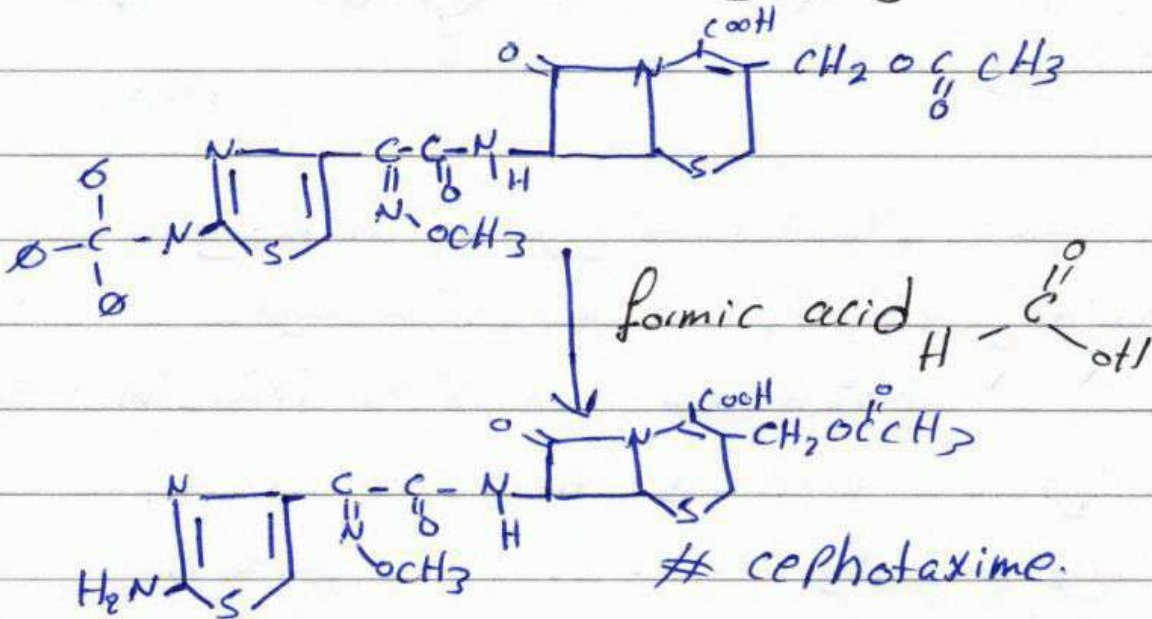 COOH
O N CH2 O C CH3
O
N C - C - N
H
O
Ø - C - N S N OCH3
Ø
Ø
S
formic acid H C O OH
COOH
O N CH2OCCH3
O
N C - C - N
O H
N OCH3
S
H2N S
# cephotaxime.